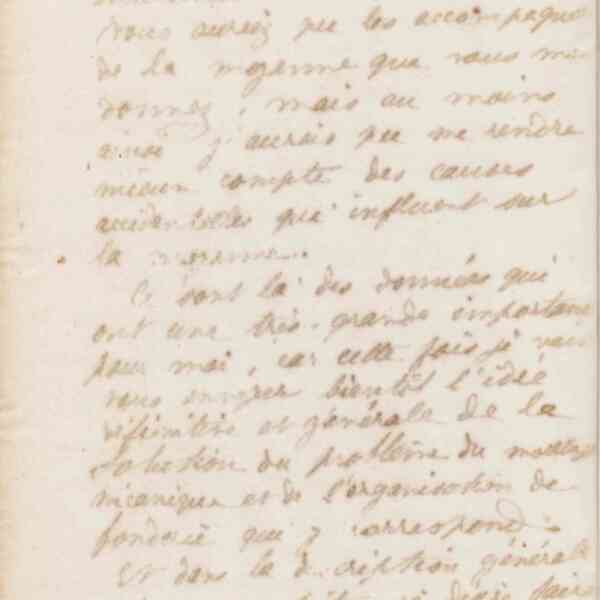 vous auriez pu les accompagner
de la moyenne que vous me
donnez, mais au moins
ainsi j'aurais pu me rendre
mieux compte des causes
accidentelles qui influent sur
la moyenne.
Ce sont là des données qui
ont une très grande importance
pour moi, car cette fois je vais
vous envoyer bientôt l'idée
définitive et générale de la
solution du problème du moulage
mécanique et de l'organisation de
fonderie qui y correspond.
Et dans la description générale
faire